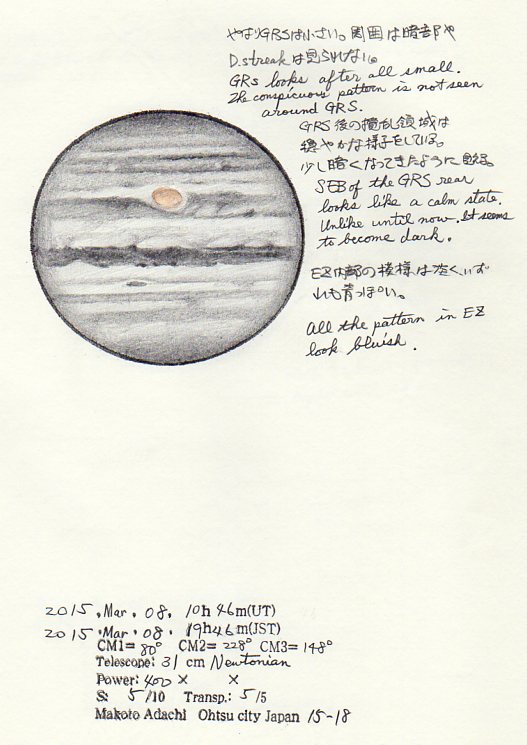 やはりGRSは小さい。周囲は暗部や
D.streakは見られない。
GRS looks after all small.
The conspicuous pattern is not seen
around GRS.
GRS後の攪乱領域は
穏やかな様子をしている。
少し暗くなってきたように見える。
SEB of the GRS rear
looks like a calm state.
Unlike until now. It seems
to become dark.
EZ内部の模様は淡く、いず
れも青っぽい。
All the pattern in EZ
look bluish.
2015. Mar. 08. 10h46m(UT)
2015. Mar. 08. 19h46m(JST)
CM1= 80° CM2= 228° CM3= 148°
Telescope: 31 cm Newtonian
Power: 400 × ×
S: 5/10 Transp.: 5/5
Makoto Adachi Ohtsu city Japan 15-18